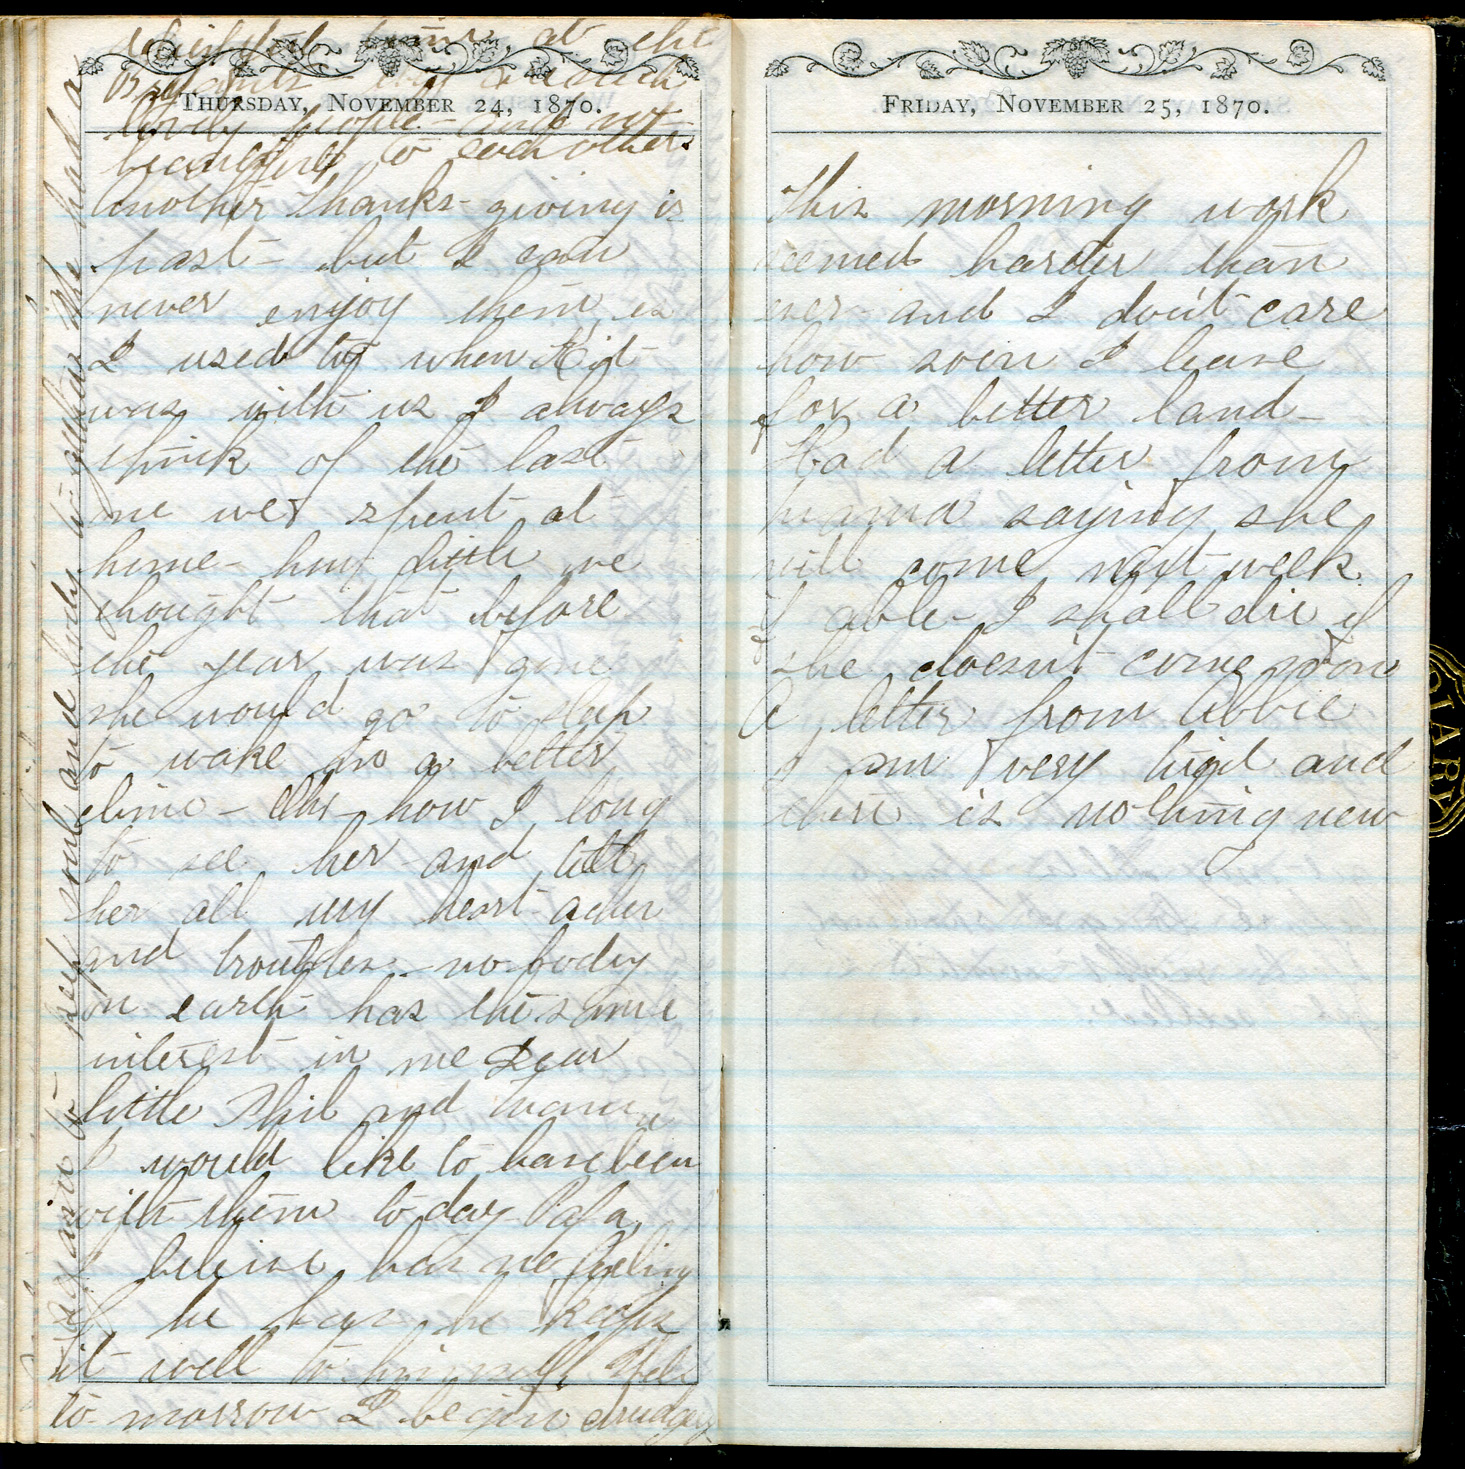 THURSDAY, NOVEMBER 24, 1870.
Another Thanks-giving is
past - but I can
never enjoy them, as
I used to when Kit
was with us I always
think of the last
one we spent at
home - how little we
thought that before
the year was gone
she would go to sleep
to wake in a better
clime - Oh how I long
to see her and tell
her all my heart aches
and troubles - no-body
on earth has the same
interest in me Dear
little Phil and Mama
I would like to have been
with them to day Papa
I believe has no feeling
if he has he keeps
it well to himself Well
to-morrow I begin drudgery
again to keep soul and body to-gether We had a
delightful time at the
my such
lovely people - and
beautiful to each other.
FRIDAY, NOVEMBER 25, 1870.
This morning work
seemed harder than
ever and I don't care
how soon I leave
for a better land -
Had a letter from
mama saying she
will come next week
if able - I shall die if
she doesn't come soon
A letter from Abbie
I am very tired and
there is nothing new
DIARY